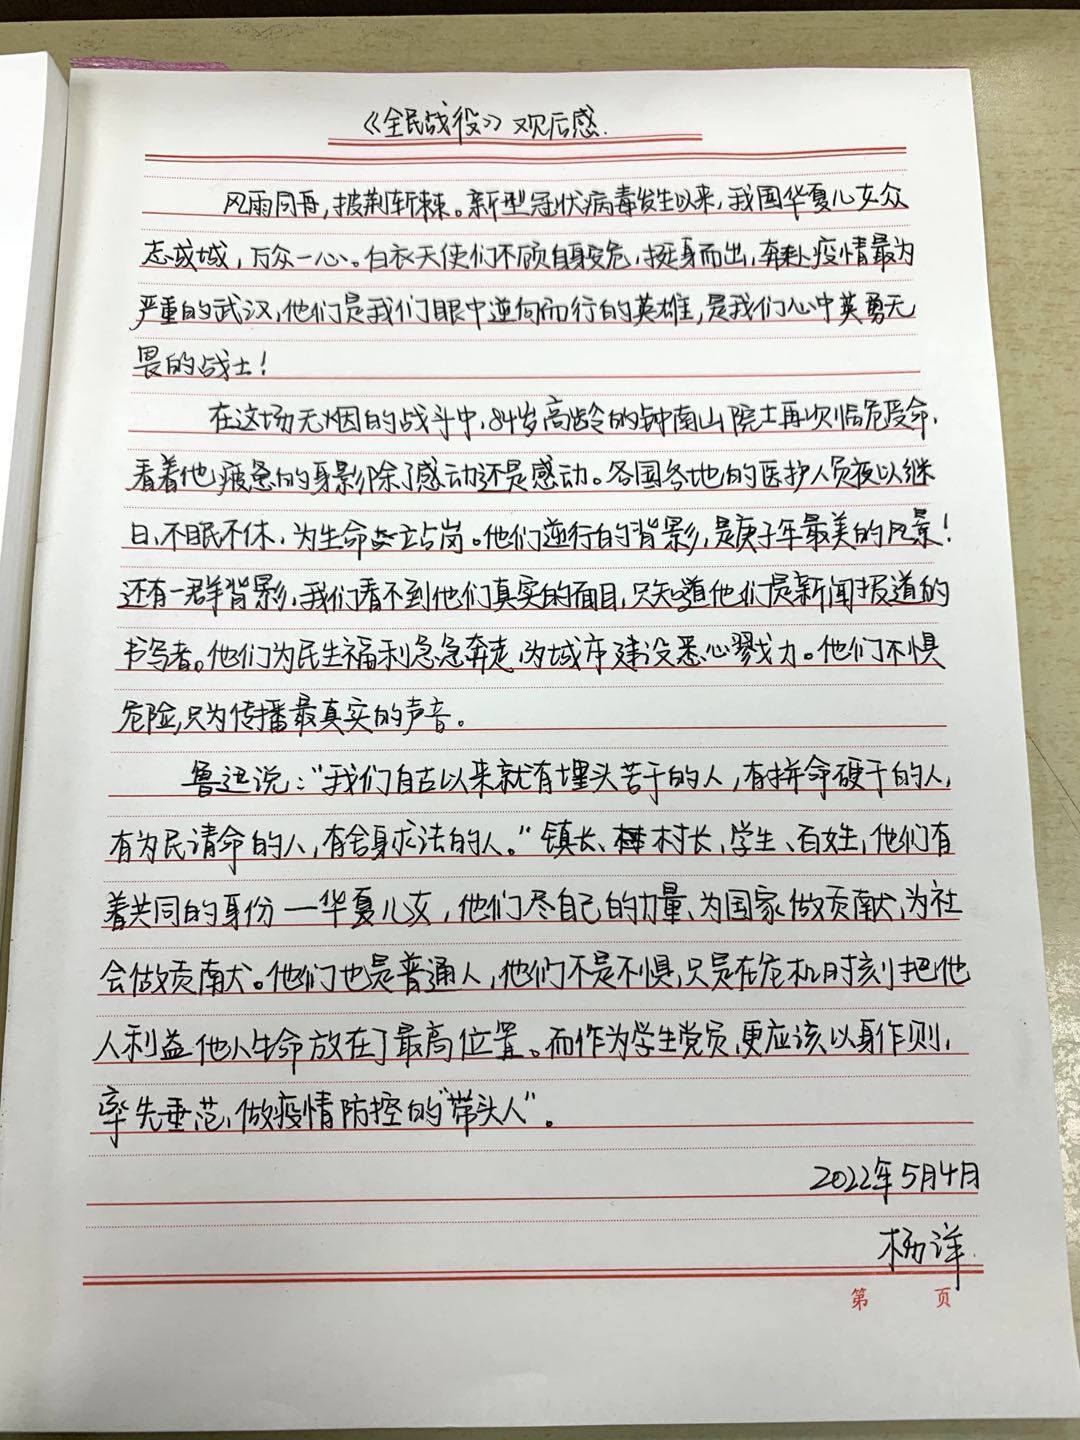 《全民战役》观后感.
风雨同舟,披荆斩棘。新型冠状病毒发生以来,我国华夏儿女众
志成城,万众一心。白衣天使们不顾自身安危,挺身而出,奔赴疫情最为
严重的武汉,他们是我们眼中逆向而行的英雄,是我们心中英勇无
畏的战士!
在这场无烟的战斗中,84岁高龄的钟南山院士再次临危受命,
看着他疲惫的身影除了感动还是感动。各国各地的医护人员夜以继
日,不眠不休,为生命站岗。他们逆行的背影,是庚子年最美的风景!
还有一群背影,我们看不到他们真实的面目,只知道他们是新闻报道的
书写者。他们为民生福利急急奔走,为城市建设悉心戮力。他们不惧
危险,只为传播最真实的声音。
鲁迅说:"我们自古以来就有埋头苦干的人,有拼命硬干的人,
有为民请命的人,有舍身求法的人。"镇长、村长,学生、百姓,他们有
着共同的身份—华夏儿女,他们尽自己的力量,为国家做贡献,为社
会做贡献。他们也是普通人,他们不是不惧,只是在危机时刻把他
人利益他人生命放在了最高位置。而作为学生党员,更应该以身作则,
率先垂范,做疫情防控的"带头人"。
2022年5月4日
杨洋
第 页